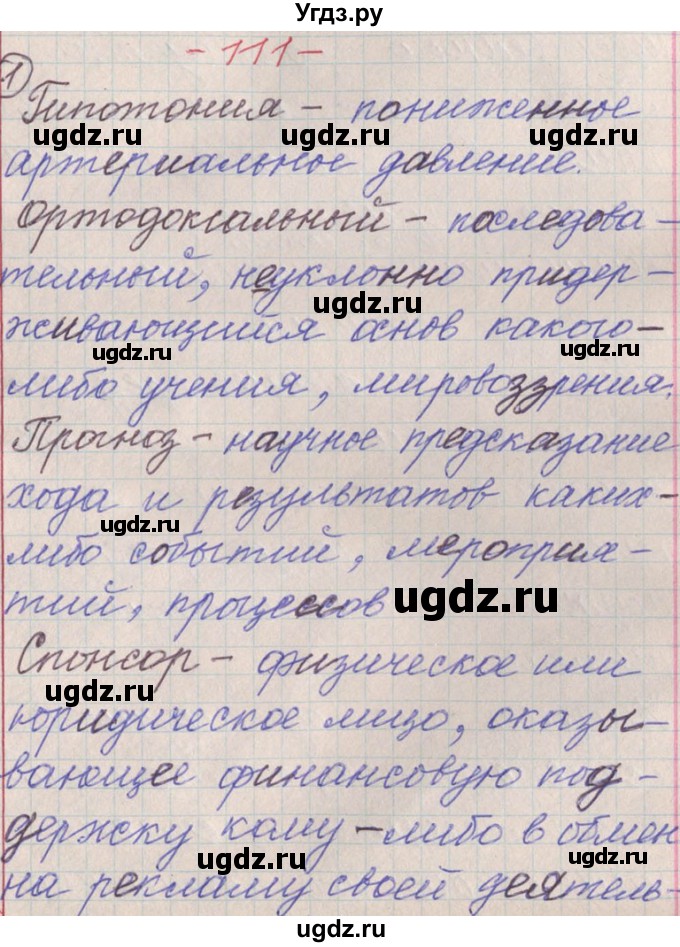 Угдз.ру
- 111 -
1
Гипотония - пониженное
ugdz.ru ugdz.ru
артериальное давление.
Ортодоксальный - последова-
тельный, неуклонно придер-
ugdz.ru
живающийся основ какого-
ugdz.ru ugdz.ru
либо учения, мировоззрения.
Прогноз - научное предсказание
хода и результатов каких-
ugdz.ru ugdz.ru
либо событий, мероприя-
тий, процессов
ugdz.ru
Спонсор - физическое или
ugdz.ru ugdz.ru
юридическое лицо, оказы-
вающее финансовую под-
держку кому-либо в обмен
ugdz.ru ugdz.ru
на рекламу своей деятель-
Угдз.ру